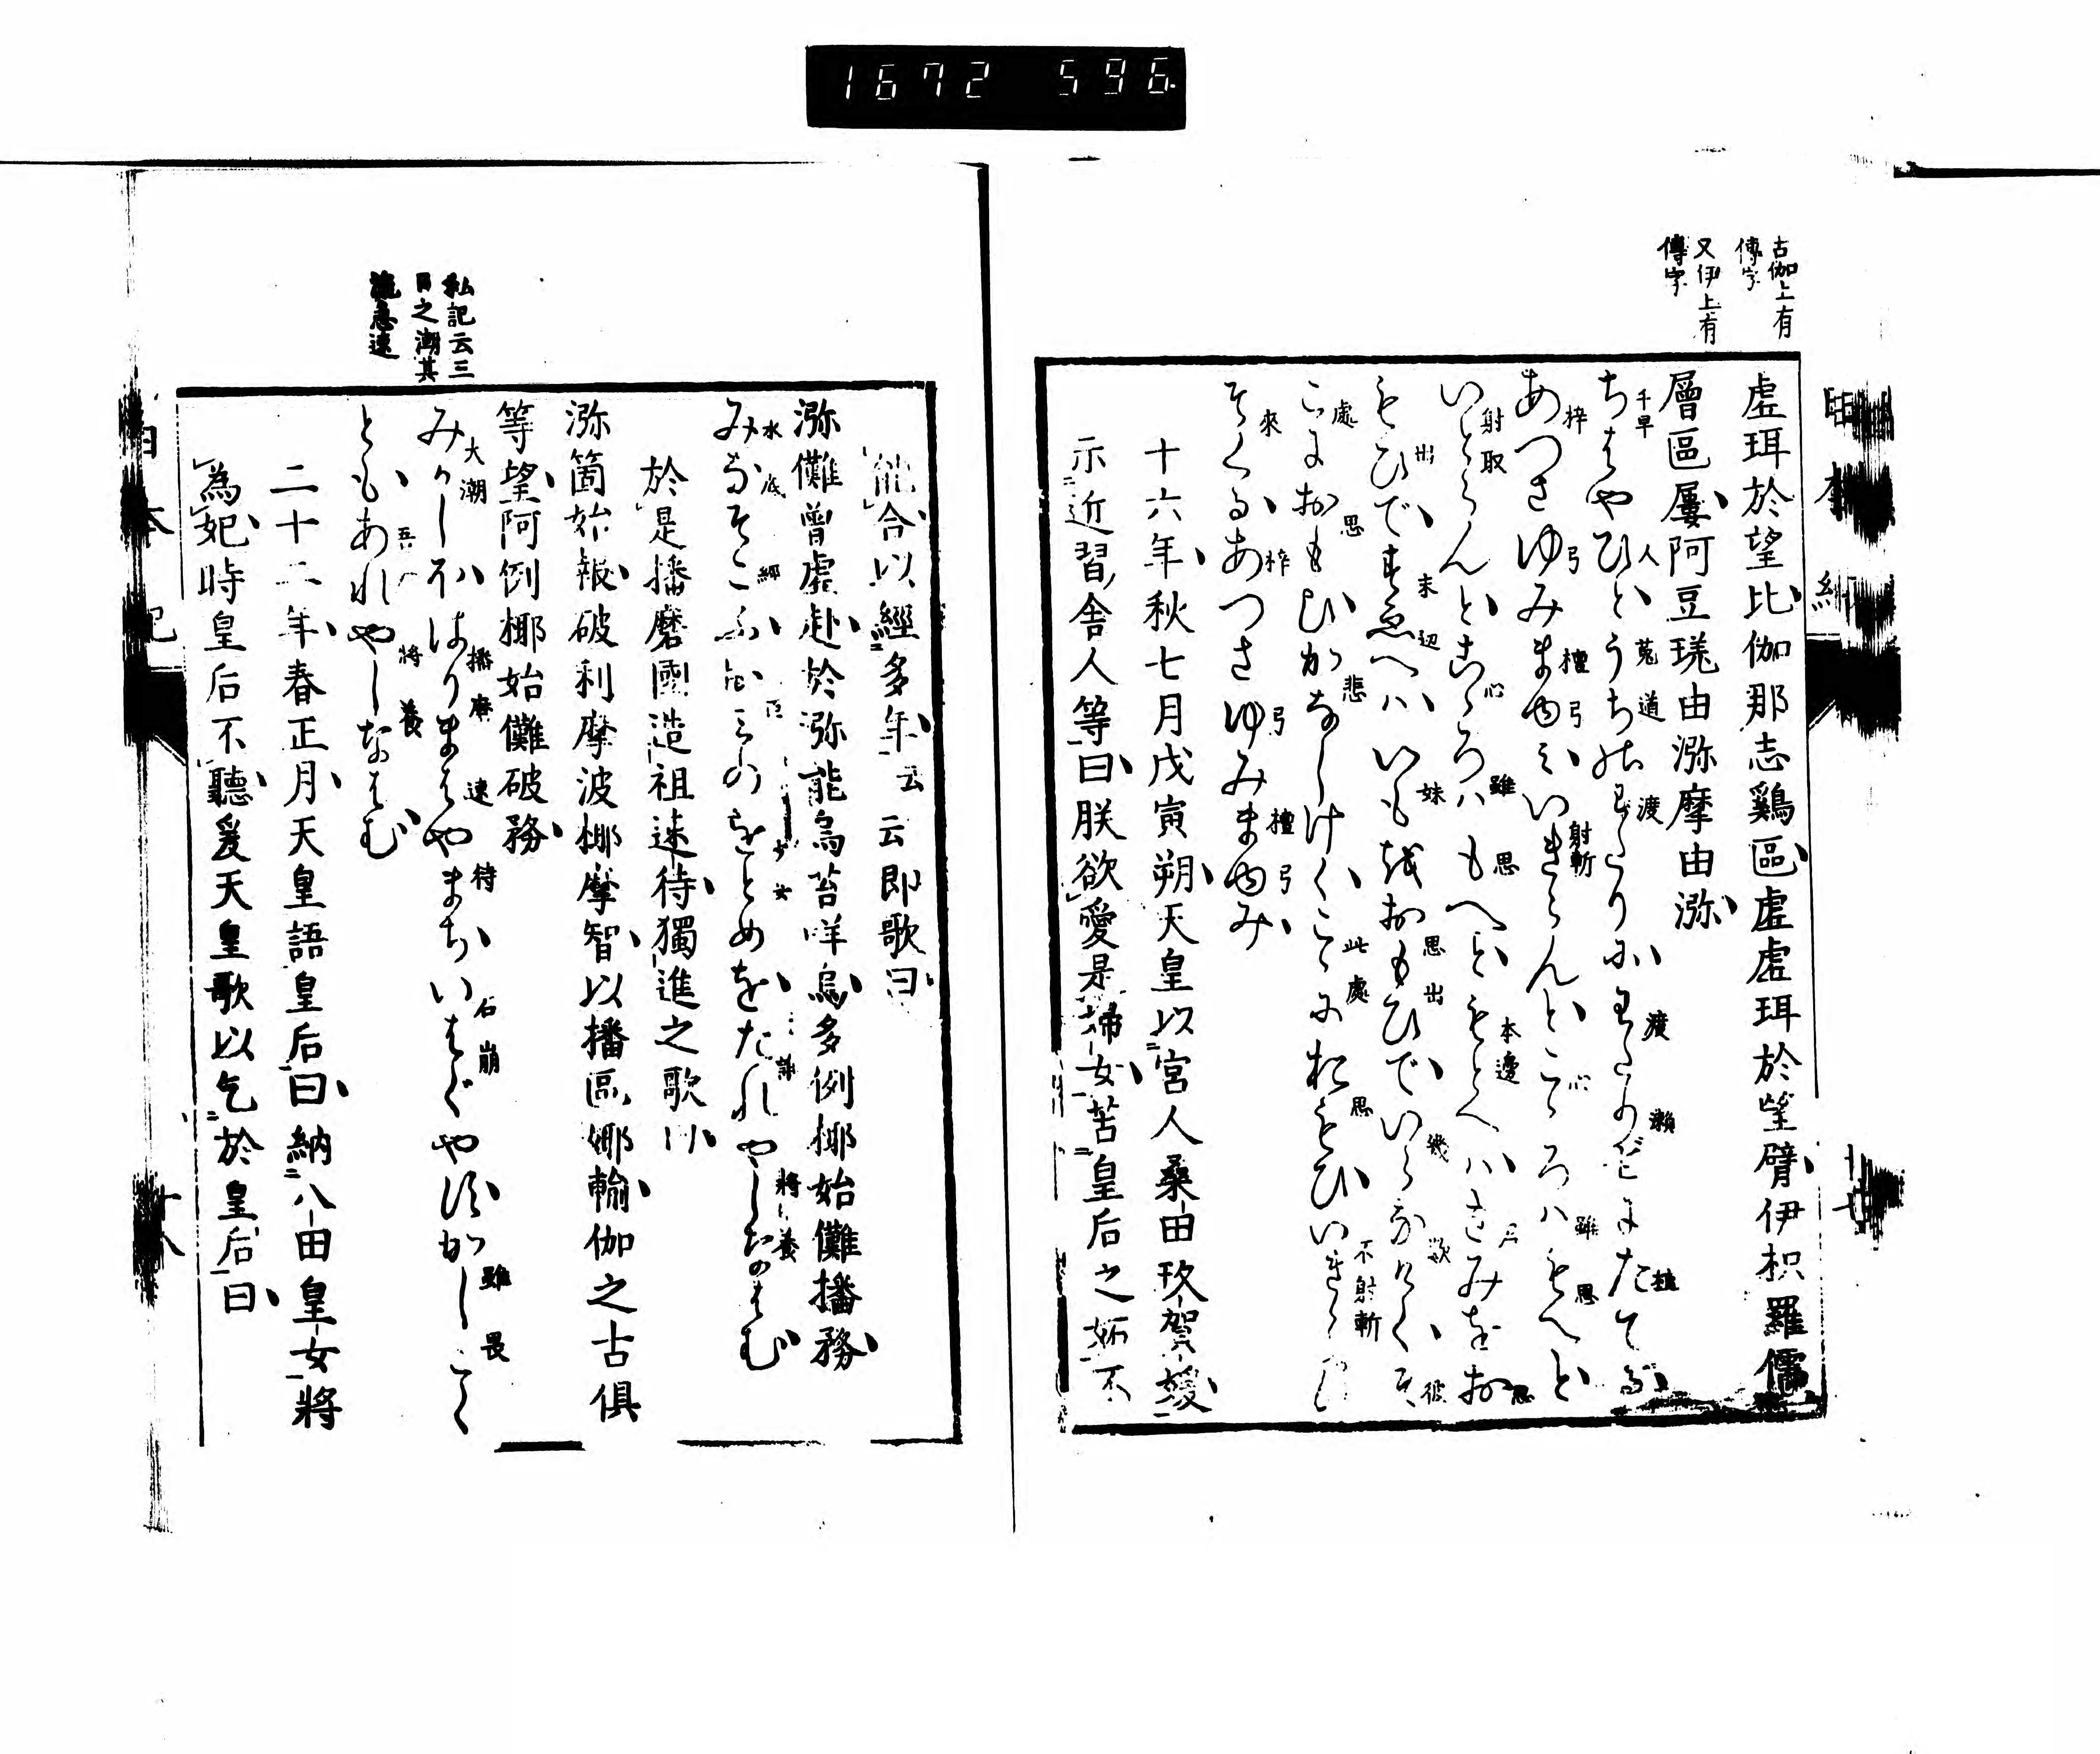 1672 596
古伽上有
傳字
又伊上有
傳字
虛珥於望比伽那志鷄區虛虛珥於望臂伊枳羅儒
層區屢阿豆瑳由瀰摩由瀰
ちはやひとうちのわたりにわたりぜにたてる
あつさゆみまゆみいきらんとこゝろハもへと
いとらんとこゝろハもへともとへハきみをお
もひですゑへハいもをおもひでいらなけくそ
こにおもひかなしけくこゝにおもひいきら
そくるあつさゆみまゆみ
十六年秋七月戊寅朔天皇以宮人桑田玖賀媛
示近習舍人等曰朕欲愛是婦女苦皇后之妬不
能合以經多年云云即歌曰
瀰儺曽虛赴於瀰能烏苔咩烏多例椰始儺播務
みなそこふおみのをとめをたれやしなはむ
於是播磨國造祖速待獨進之歌曰
瀰箇始報破利摩波椰摩智以播區娜輸伽之古俱
等望阿例椰始儺破務
みかしほはりまはやまちいはくやすかしこく
ともあれやしなはむ
二十二年春正月天皇語皇后曰納八田皇女將
為妃時皇后不聽爰天皇歌以乞於皇后曰
私記云三
日之潮其
流急速
日本紀